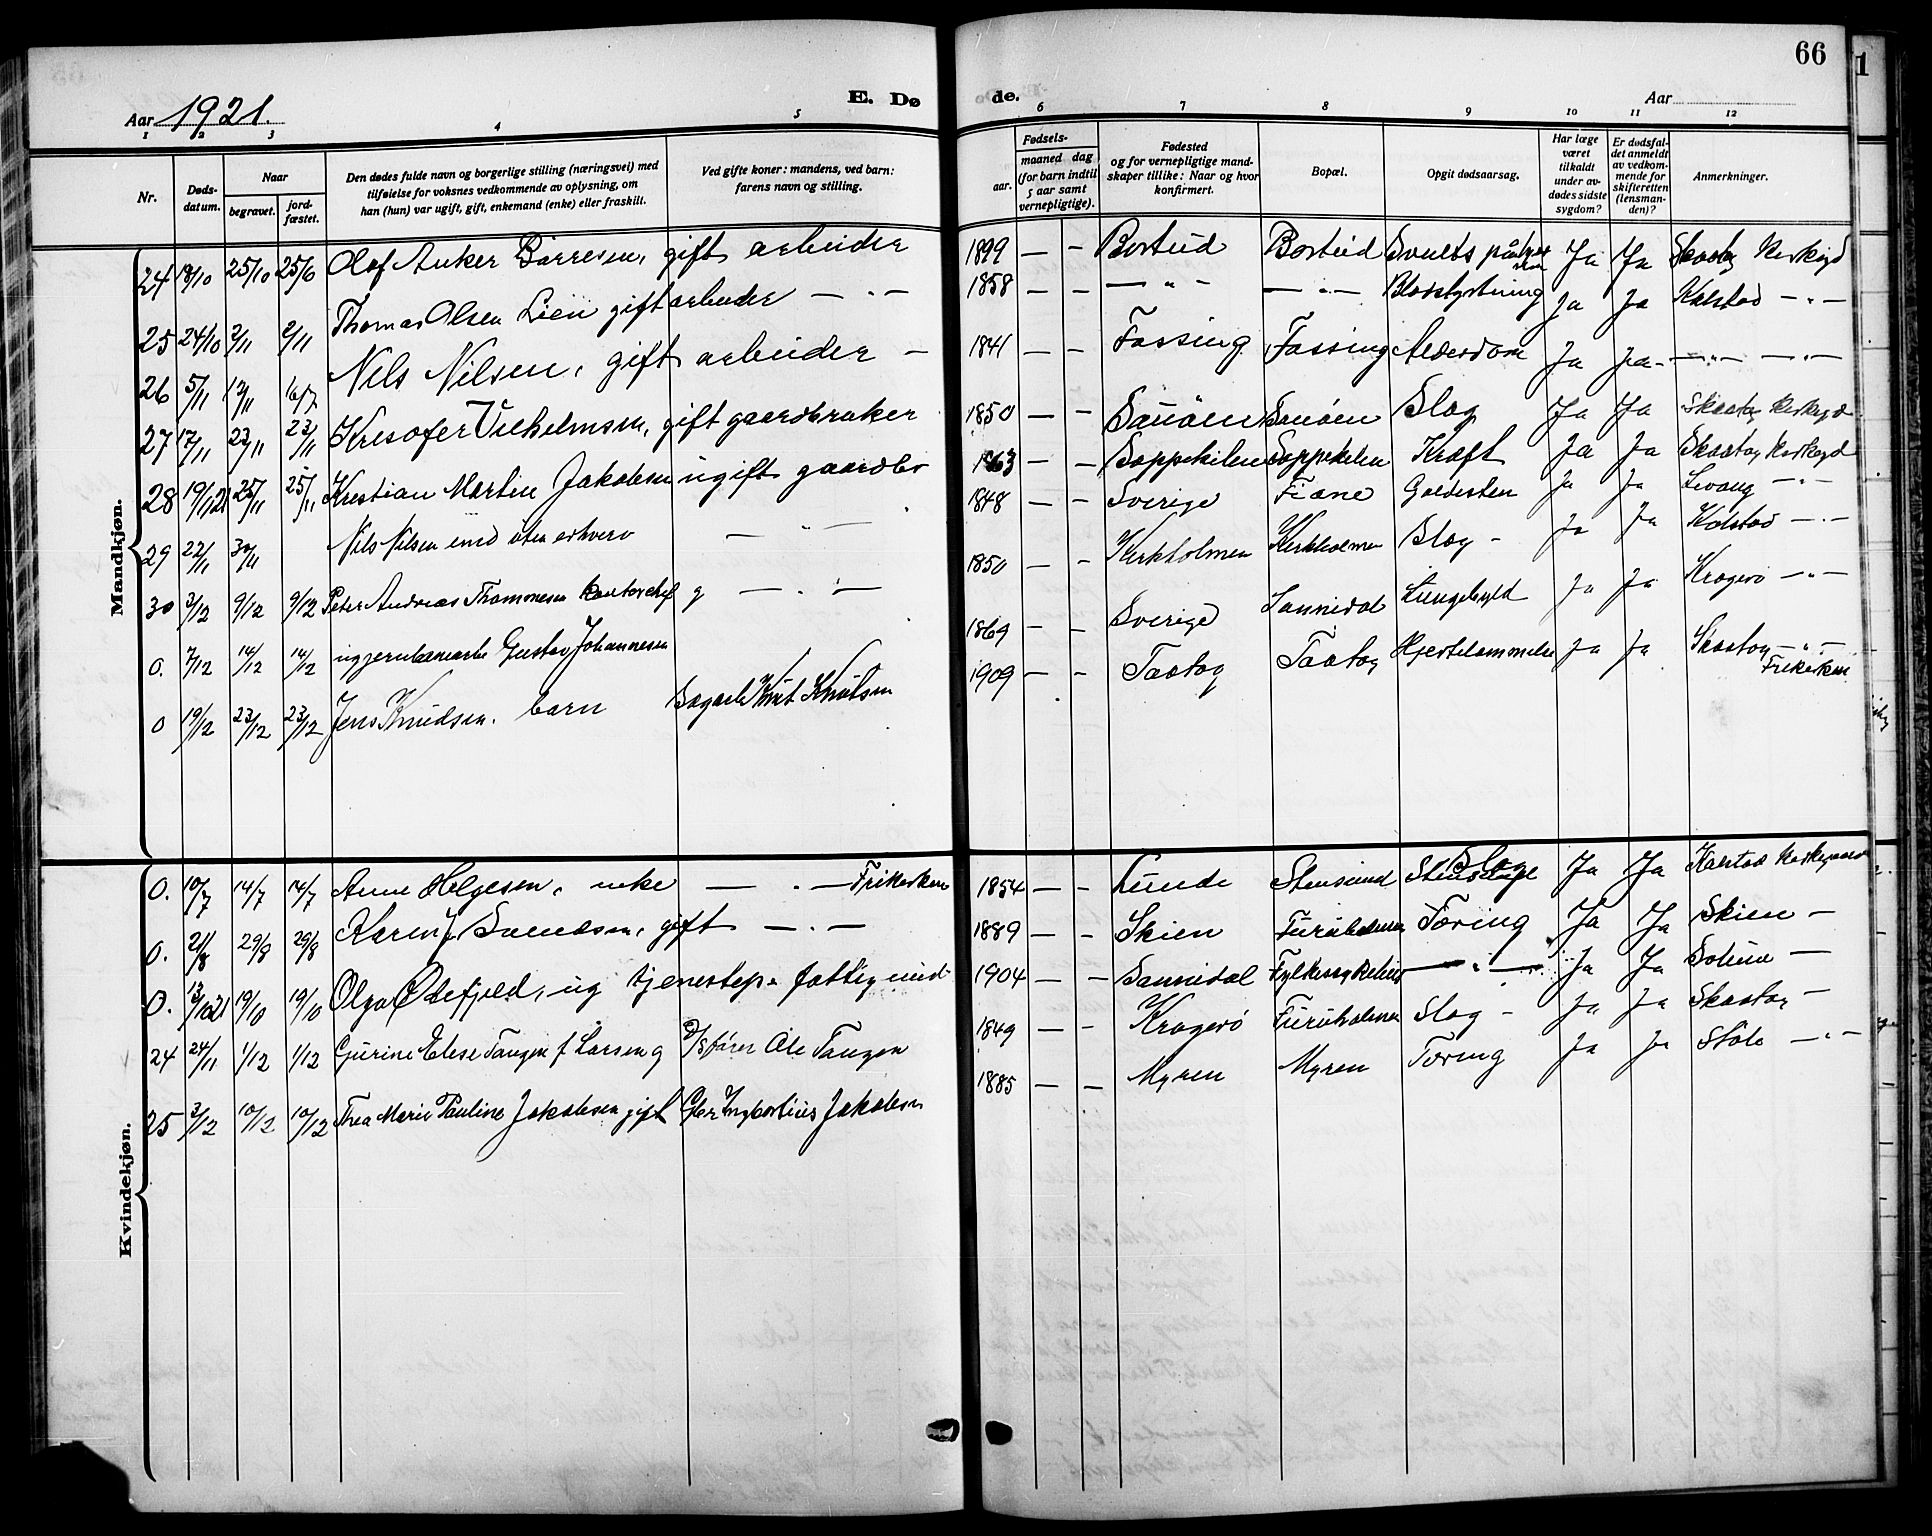 66
1
E. Dø de.
Aar 1921.
Aar
1 2 3 4 5 6 7 8 9 10 11 12
Nr.
Døds-datum.
Naar
begravet.
jord-fæstet.
Den dødes fulde navn og borgerlige stilling (næringsvei) med tilføielse for voksnes vedkommende av oplysning, om han (hun) var ugift, gift, enkemand (enke) eller fraskilt.
Ved gifte koner: mandens, ved barn: farens navn og stilling.
Fødsels-
aar.
maaned dag (for barn indtil 5 aar samt vernepligtige).
Fødested og for vernepligtige mand-skaper tillike: Naar og hvor konfirmert.
Bopæl.
Opgit dødsaarsag.
Har læge været tilkaldt under av-dødes sidste sygdom?
Er dødsfal-det anmeldt av vedkom-mende for skifteretten (lensman-den)?
Anmerkninger.
Mandkjøn.
24 18/10 25/10 25/10 Olaf Anker Børresen, gift arbeider 1899 — – Borteid Borteid Ja Ja Skaatøy Kirkegd
25 24/10 2/11 2/11 Thomas Olsen Lien gift arbeider — " — 1858 — – — " – — " — Blodstyrtning Ja Ja Kalstad — " —
26 5/11 12/11 Nils Nilsen, gift arbeider – 1841 — – Fossing Fossing Alderdom Ja Ja – — " — — " —
27 17/11 23/11 23/11 Kristofer Vilhelmsen, gift gaardbruker 1850 — – Sauøen Sauøen Slag Ja Ja Skaatøy Kirkegd
28 19/11 21 25/11 25/11 Kristian Martin Jakobsen ugift gaardbr 1863 — – Soppekilen Soppekilen Kræft Ja Ja Skaatøy Kirkegd
29 22/11 30/11 Nils Nilsen emd uten erhverv — " — 1848 — – Sverige Fiane Galdesten Ja Ja Levang — " –
30 3/12 9/12 9/12 Peter Andreas Thommesen Kontorchef g — " — 1850 — – Kirkholmen Kirkholmen Slag – Ja Ja Kalstad — " —
0. 7/12 14/12 14/12 ug jernbanearb Gustav Johannesen 1869 — – Sverige Sannidal Lungebyld Ja Ja Kragerø — " —
0 19/12 23/12 23/12 Jens Knudsen. barn Knut Knutsen 1909 — – Taatøy Taatøy Hjertelammelse Ja Ja Skaatøy — " — Frikirken
Kvindekjøn.
0. 10/7 14/7 14/7 Anne Helgesen, enke — " — Frikirken 1854 — – Lunde Stensund Slag Ja Ja Kalstad Kirkegaard
0. 21/8 29/8 29/8 Karen J Svendsen, gift — " — 1889 — – Skien Furuholmen Tæring Ja Ja Skien –
0. 13/10 21 19/10 19/10 Olga Ødefjeld, ug tjenestep. fattigund 1904 — – Sannidal Fylkessykehus — " — Ja Ja Solum —
24 24/11 1/12 1/12 Gurine Elise Tangen f Larsen g D/S fører Ole Tangen 1849 — – Kragerø Furuholmen Slag – Ja Ja Skaatøy –
25 3/12 10/12 10/12 Thea Marie Pauline Jakobsen gift Jakobsen 1885 — – Myren Myren Tæring Ja Ja Støle — " —